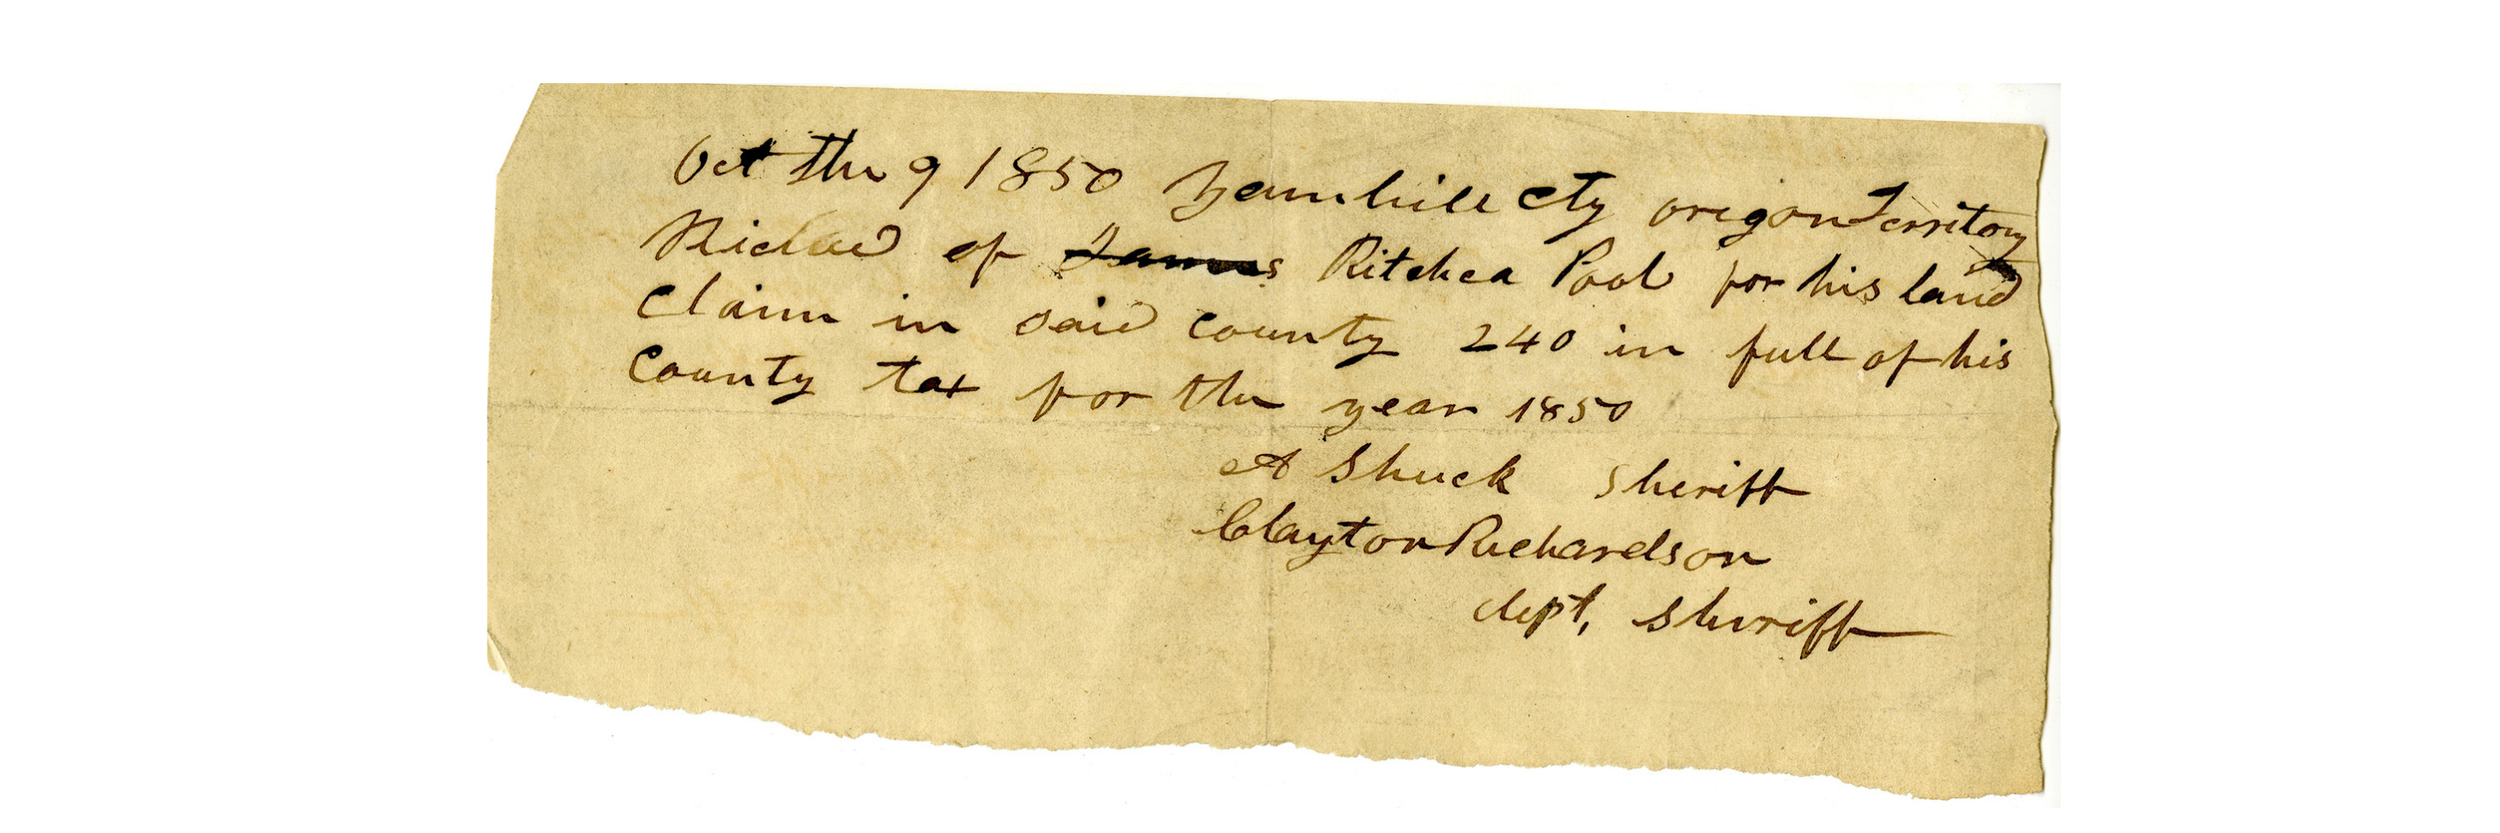 Oct the 9 1850 Yamhill cty oregon Territory
Richd of James Ritchea Pool for his land
Claim in said county 240 in full of his
County tax for the year 1850
A Shuck Sheriff
Clayton Richardson
dept, Sheriff